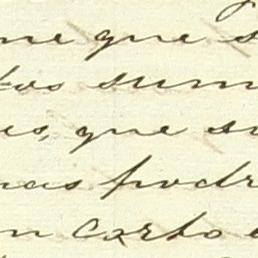 me que s
tos sum
es, que su
nas podr
n corto